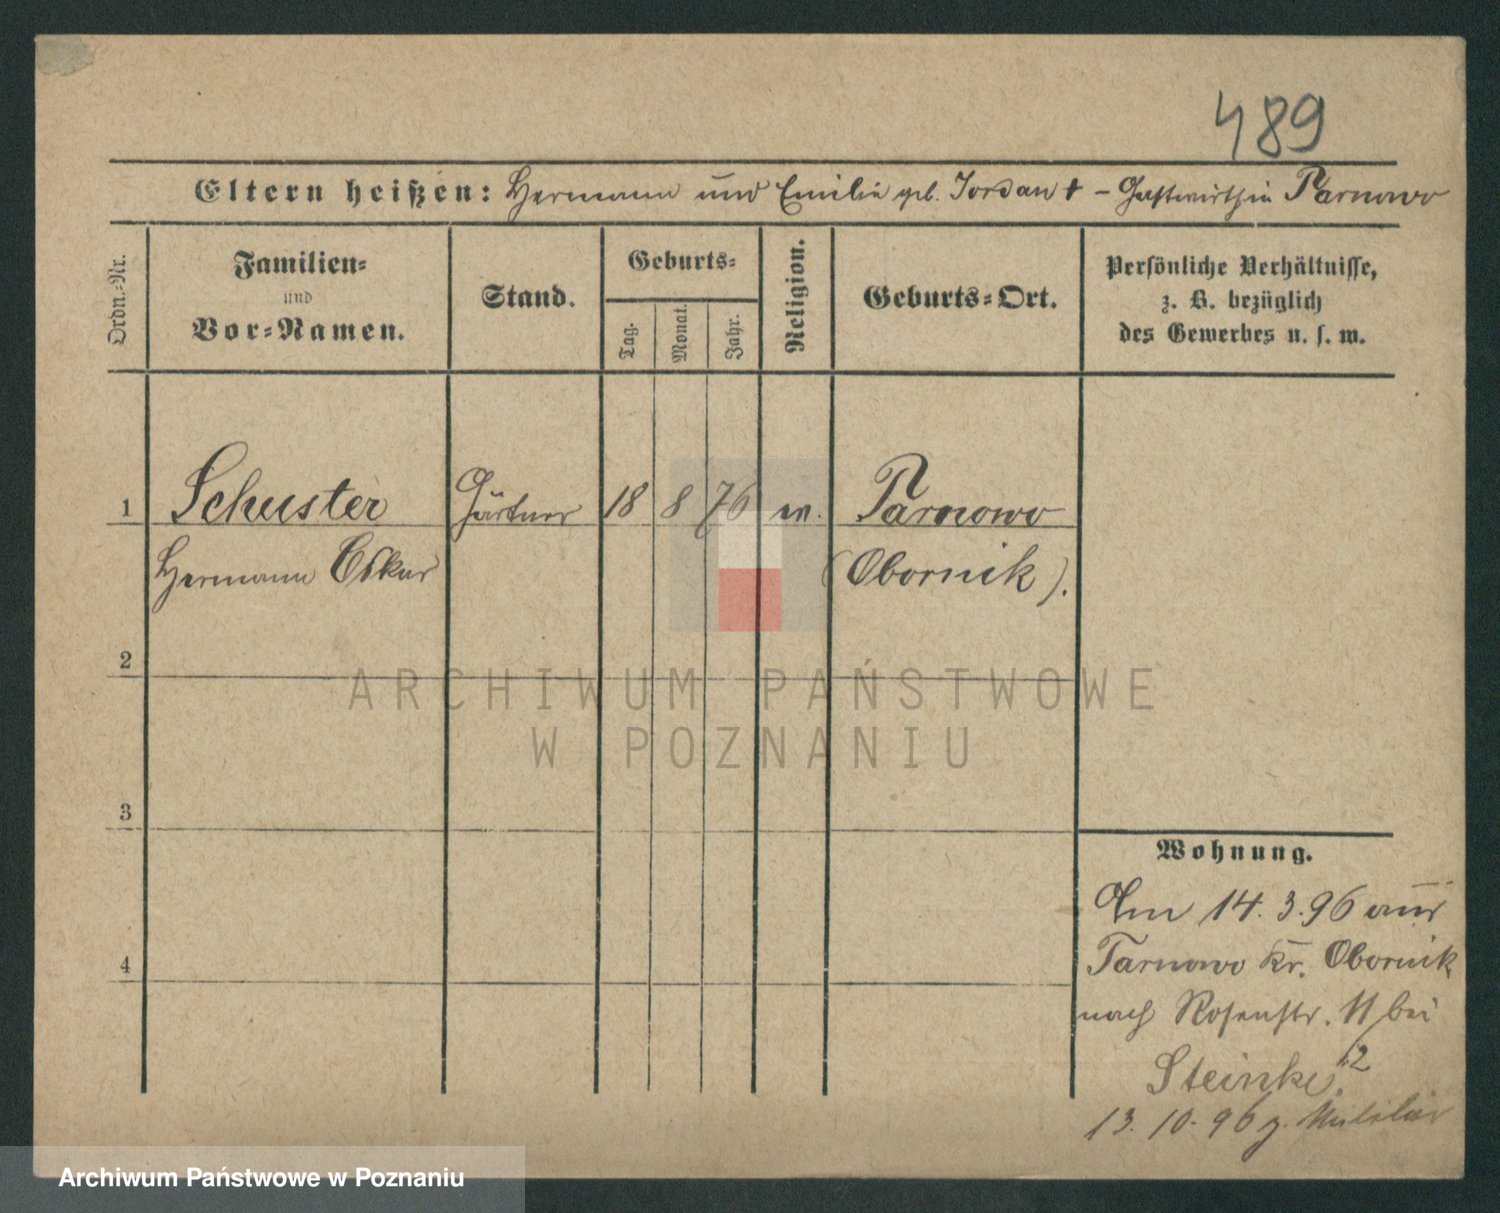 489
Eltern heißen: Hermann und Emilie geb. Jordan † – Gastwirth in Parnowo
Ordn.-Nr.
Familien-
und
Vor-Namen.
Stand.
Geburts-
Tag.
Monat.
Jahr.
Religion.
Geburts-Ort.
Persönliche Verhältnisse,
z. B. bezüglich
des Gewerbes u. s. w.
1 Schuster Gärtner 18 8 76 ev. Parnowo
Hermann Oskar (Obornik).
2
3
4
Wohnung.
Am 14.3.96 aus
Tarnowo Kr. Obornik
nach Rosenstr. 11 bei
Steinke.
13.10.96 z. Militär
ARCHIWUM PAŃSTWOWE
W POZNANIU
Archiwum Państwowe w Poznaniu